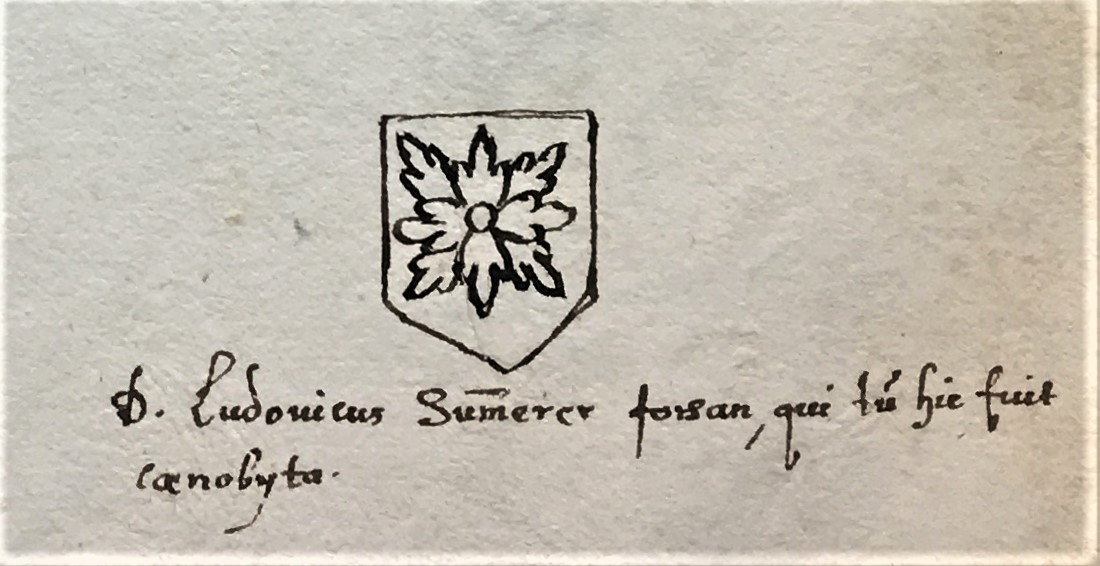 D. Ludouicus Sum̄erer forsan, qui tū hic fuit
cænobyta.